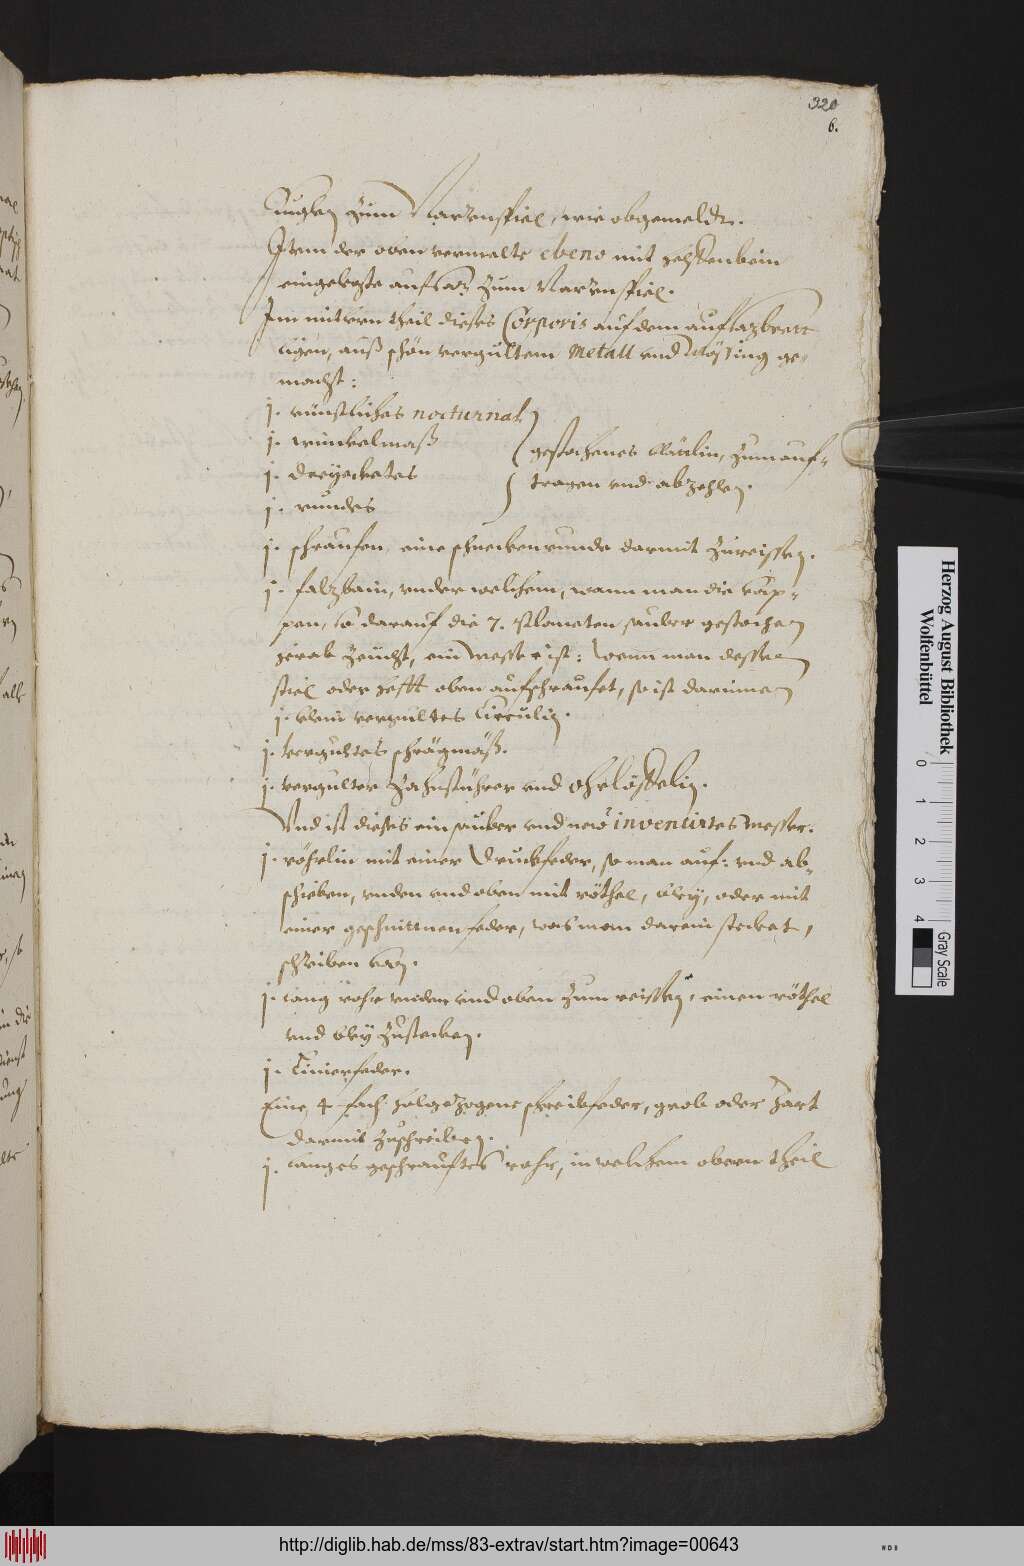 320
6.
Kuglen zum Narrenspiel, wie obgemeldt.
Item der oben vermelte ebeno mit helffenbein
eingelegte aufsaz zum Narrenspiel.
Im mittern theil dieses Corporis auf dem aufsazbrett
ligen, auß schön vergultem Metall und Mössing ge-
macht:
j. künstliches nocturnal
j. winckelmaß
j. dreyecketes
j. rundes
gestochenes blätlin, zum auf-
tragen und abzehlen.
j. schraufen, eine schneckenrunde darmit zureissen.
j. falzbain, under welchem, wann man die kap-
pen, so darauf die 7. Planeten sauber gestochen
herab zeücht, ein messer ist: Wenn man dessen
stiel oder hefft oben aufschraufet, so ist darinnen
j. klein vergultes Circulin.
j. vergultes schrägmäß.
j. vergulter Zahnstührer und ohrlöffelin.
Und ist dieses ein sauber und new inventirtes messer.
j. röhrlin mit einer Druckfeder, so man auf: und ab-
schieben, unden und oben mit röthel, bley, oder mit
einer geschnittnen feder, was man darein stecket,
schreiben kan.
j. lang rohr unden und oben zum reissen, einen röthel
und bley zustecken.
j. Linierfeder.
Eine 4 fach holgezogene schreibfeder, grob oder zart
darmit zuschreiben.
j. langes geschrauftes rohr, in welchem obern theil
Herzog August Bibliothek
Wolfenbüttel
0 1 2 3 4
Gray Scale
http://diglib.hab.de/mss/83-extrav/start.htm?image=00643